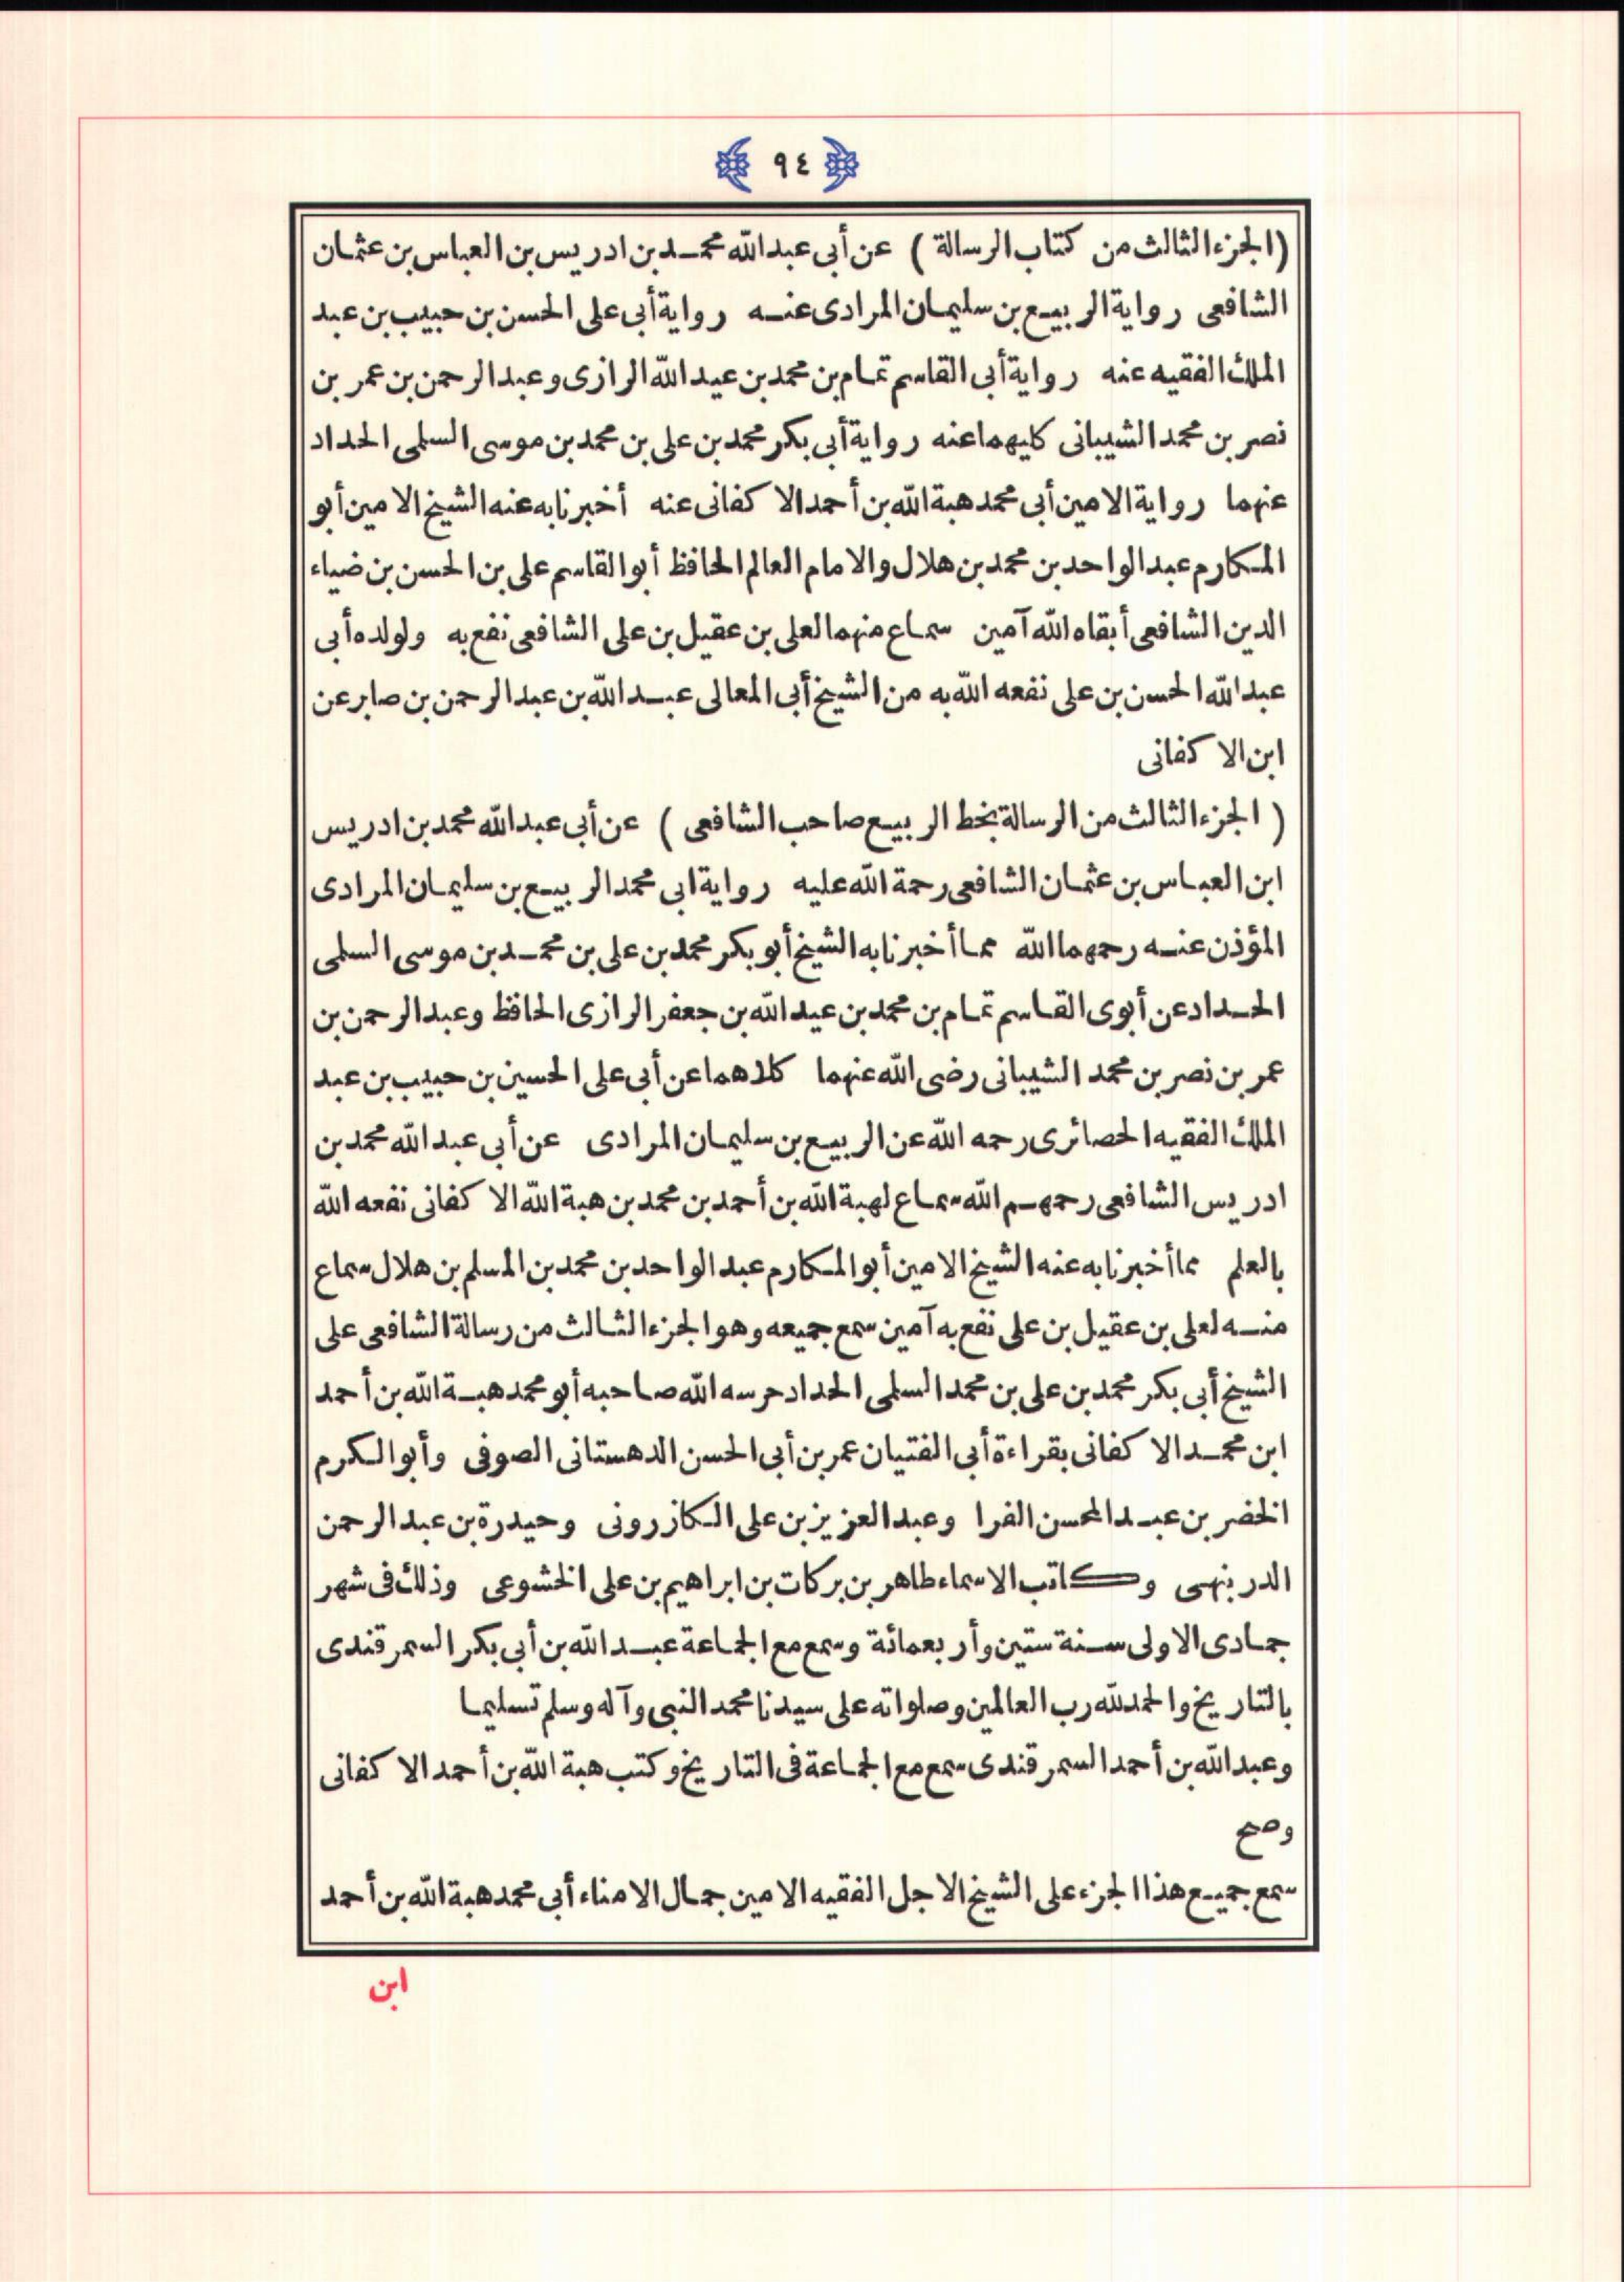 ٩٤
(الجزء الثالث من كتاب الرسالة) عن أبى عبد الله محمد بن ادريس بن العباس بن عثمان
الشافعى رواية الربيع بن سليمان المرادى عنه رواية أبى على الحسن بن حبيب بن عبد
الملك الفقيه عنه رواية أبى القاسم تمام بن محمد بن عبد الله الرازى وعبد الرحمن بن عمر بن
نصر بن محمد الشيبانى كليهما عنه رواية أبى بكر محمد بن على بن محمد بن موسى السلمى الحداد
عنهما رواية الامين أبى محمد هبة الله بن أحمد الا كفانى عنه أخبرنا به عنه الشيخ الامين أبو
المكارم عبد الواحد بن محمد بن هلال والامام العالم الحافظ أبو القاسم على بن الحسن بن ضياء
الدين الشافعى أبقاه الله آمين سماع منهما لعلى بن عقيل بن على الشافعى نفع به ولولده أبى
عبد الله الحسن بن على نفعه الله به من الشيخ أبى المعالى عبد الله بن عبد الرحمن بن صابر عن
ابن الا كفانى
(الجزء الثالث من الرسالة بخط الربيع صاحب الشافعى) عن أبى عبد الله محمد بن ادريس
ابن العباس بن عثمان الشافعى رحمة الله عليه رواية ابى محمد الربيع بن سليمان المرادى
المؤذن عنه رحمهما الله مما أخبرنا به الشيخ أبو بكر محمد بن على بن محمد بن موسى السلمى
الحداد عن أبوى القاسم تمام بن محمد بن عبد الله بن جعفر الرازى الحافظ وعبد الرحمن بن
عمر بن نصر بن محمد الشيبانى رضى الله عنهما كلاهما عن أبى على الحسين بن حبيب بن عبد
الملك الفقيه الحصائرى رحمه الله عن الربيع بن سليمان المرادى عن أبى عبد الله محمد بن
ادريس الشافعى رحمهم الله سماع لهبة الله بن أحمد بن محمد بن هبة الله الا كفانى نفعه الله
بالعلم مما أخبرنا به عنه الشيخ الامين أبو المكارم عبد الواحد بن محمد بن المسلم بن هلال سماع
منه لعلى بن عقيل بن على نفع به آمين سمع جميعه وهو الجزء الثالث من رسالة الشافعى على
الشيخ أبى بكر محمد بن على بن محمد السلمى الحداد حرسه الله صاحبه أبو محمد هبة الله بن أحمد
ابن محمد الا كفانى بقراءة أبى الفتيان عمر بن أبى الحسن الدهستانى الصوفى وأبو الكرم
الخضر بن عبد المحسن الفرا وعبد العزيز بن على الكازرونى وحيدرة بن عبد الرحمن
الدربنهى وكاتب الاسماء طاهر بن بركات بن ابراهيم بن على الخشوعى وذلك فى شهر
جمادى الاولى سنة ستين وأربعمائة وسمع مع الجماعة عبد الله بن أبى بكر السمرقندى
بالتاريخ والحمد لله رب العالمين وصلواته على سيدنا محمد النبى وآله وسلم تسليما
وعبد الله بن أحمد السمرقندى سمع مع الجماعة فى التاريخ وكتب هبة الله بن أحمد الا كفانى
وصح
سمع جميع هذا الجزء على الشيخ الاجل الفقيه الامين جمال الامناء أبى محمد هبة الله بن أحمد
ابن